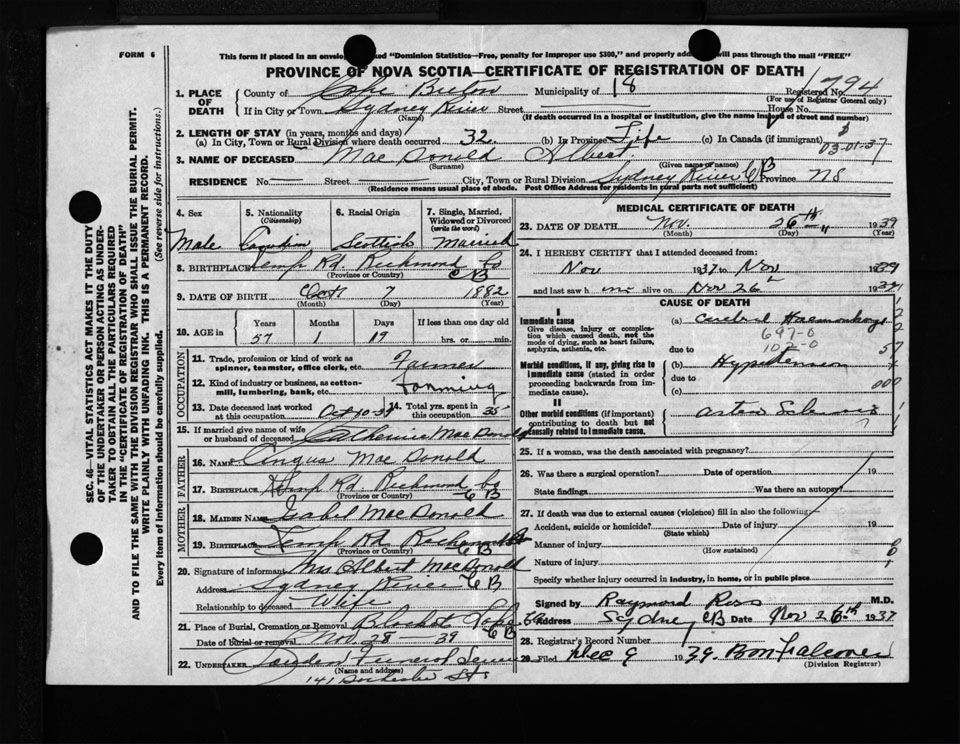 FORM 6
This form if placed in an envelop ked "Dominion Statistics—Free, penalty for improper use $300," and properly add will pass through the mail "FREE"
PROVINCE OF NOVA SCOTIA—CERTIFICATE OF REGISTRATION OF DEATH
1. PLACE OF DEATH County of Cape Breton Municipality of 18 Registered No. 794
(For use of Registrar General only)
If in City or Town Sydney River Street House No.
(Name) (If death occurred in a hospital or institution, give the name instead of street and number)
2. LENGTH OF STAY (in years, months and days)
(a) In City, Town or Rural Division where death occurred 32 (b) In Province Life (c) In Canada (if immigrant)
03-01-37
3. NAME OF DECEASED MacDonald Albert
(Surname) (Given name or names)
RESIDENCE No. Street City, Town or Rural Division Sydney River CB Province NS
(Residence means usual place of abode. Post Office Address for residents in rural parts not sufficient)
4. Sex Male
5. Nationality (Citizenship) Canadian
6. Racial Origin Scottish
7. Single, Married, Widowed or Divorced (write the word) Married
8. BIRTHPLACE Kemp Rd. Richmond Co CB
(Province or Country)
9. DATE OF BIRTH Oct 7 1882
(Month) (Day) (Year)
10. AGE in Years Months Days If less than one day old
57 1 19 hrs. or min.
OCCUPATION
11. Trade, profession or kind of work as spinner, teamster, office clerk, etc. Farmer
12. Kind of industry or business, as cotton-mill, lumbering, bank, etc. Farming
13. Date deceased last worked at this occupation Oct 10-39
14. Total yrs. spent in this occupation 35
15. If married give name of wife or husband of deceased Catherine MacDonald
FATHER
16. NAME Angus MacDonald
17. BIRTHPLACE Kemp Rd. Richmond Co CB
(Province or Country)
MOTHER
18. MAIDEN NAME Isabel MacDonald
19. BIRTHPLACE Kemp Rd Richmond Co CB
(Province or Country)
20. Signature of informant Mrs Albert McDonald
Address Sydney River CB
Relationship to deceased Wife
21. Place of Burial, Cremation or Removal CB
Date of burial or removal Nov. 28 39
22. UNDERTAKER
(Name and address)
141 Dorchester St
MEDICAL CERTIFICATE OF DEATH
23. DATE OF DEATH Nov. 26th 1939
(Month) (Day) (Year)
24. I HEREBY CERTIFY that I attended deceased from:
Nov 1937 to Nov 1939
and last saw him alive on Nov 26 1939
CAUSE OF DEATH
I
Immediate cause
Give disease, injury or complication which caused death, not the mode of dying, such as heart failure, asphyxia, asthenia, etc.
(a) Cerebral Haemorrhage
697-0
102-0
due to
57
Morbid conditions, if any, giving rise to immediate cause (stated in order proceeding backwards from immediate cause).
(b) Hypertension
due to
(c)
000
II
Other morbid conditions (if important) contributing to death but not causally related to immediate cause.
25. If a woman, was the death associated with pregnancy?
26. Was there a surgical operation? Date of operation 19
State findings Was there an autopsy
27. If death was due to external causes (violence) fill in also the following:
Accident, suicide or homicide? Date of injury 19
(State which)
Manner of injury
(How sustained)
Nature of injury
Specify whether injury occurred in industry, in home, or in public place
Signed by Raymond Ross M.D.
Address Sydney CB Date Nov 26th 1937
28. Registrar's Record Number
29. Filed Dec 9 1939
(Division Registrar)
SEC. 46—VITAL STATISTICS ACT MAKES IT THE DUTY OF THE UNDERTAKER OR PERSON ACTING AS UNDERTAKER TO OBTAIN ALL THE PARTICULARS REQUIRED IN THE "CERTIFICATE OF REGISTRATION OF DEATH" AND TO FILE THE SAME WITH THE DIVISION REGISTRAR WHO SHALL ISSUE THE BURIAL PERMIT.
WRITE PLAINLY WITH UNFADING INK. THIS IS A PERMANENT RECORD.
Every item of information should be carefully supplied. (See reverse side for instructions.)